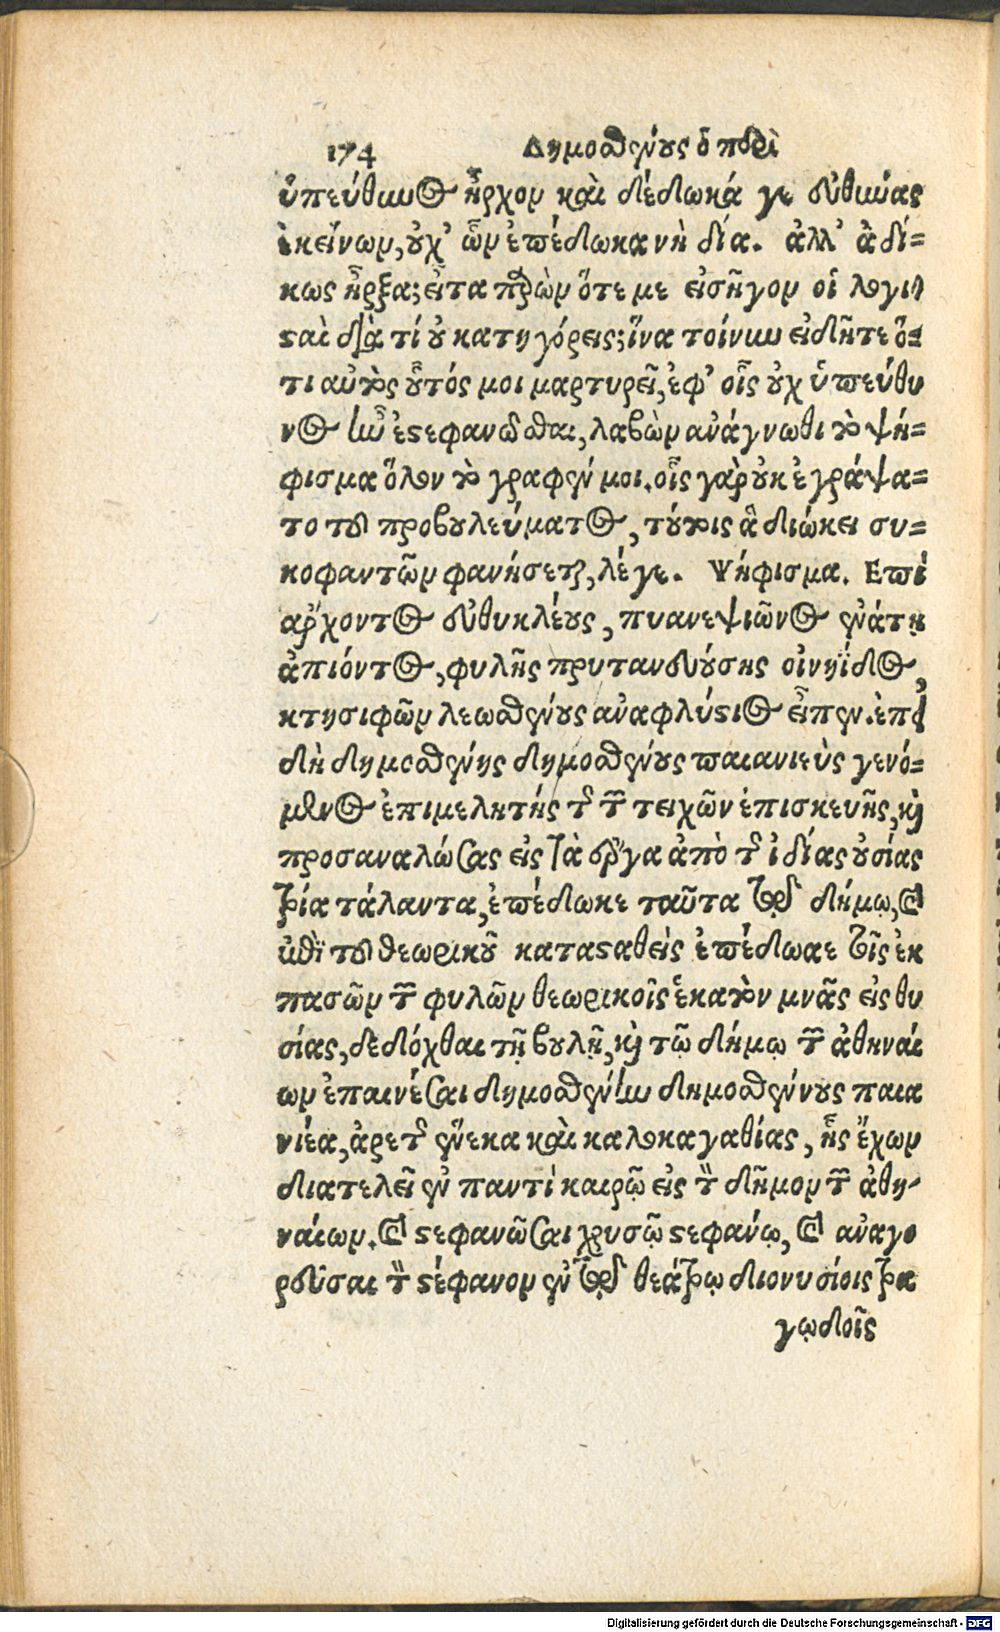 174 Δημοσθένους ὁ περὶ
ὑπεύθυνος ἦρχον καὶ δέδωκά γε εὐθύνας
ἐκείνων, οὐχ’ ὧν ἐπέδωκα νὴ δία. ἀλλ’ ἀδί=
κως ἦρξα; εἶτα παρὼν ὅτε με εἰσῆγον οἱ λογι
σαὶ διὰ τί οὐ κατηγόρεις; ἵνα τοίνυν εἰδῆτε ὅ=
τι αὐτὸς οὗτός μοι μαρτυρεῖ, ἐφ’ οἷς οὐχ ὑπεύθυ
νος ἦν ἐστεφανῶσθαι, λαβὼν ἀνάγνωθι τὸ ψή=
φισμα ὅλον τὸ γραφέν μοι. οἷς γὰρ οὐκ ἐγράψα=
το τοῦ προβουλεύματος, τούτοις ἃ διώκει συ=
κοφαντῶν φανήσεται, λέγε. Ψήφισμα. Επὶ
ἄρχοντος εὐθυκλέους, πυανεψιῶνος ἐνάτῃ
ἀπιόντος, φυλῆς πρυτανευούσης οἰνηΐδος,
κτησιφῶν λεωσθένους ἀναφλύστιος εἶπεν. ἐπὶ
δὴ δημοσθένης δημοσθένους παιανιεὺς γενό=
μενος ἐπιμελητής τῆς τῶν τειχῶν ἐπισκευῆς, καὶ
προσαναλώσας εἰς τὰ ἔργα ἀπὸ τῆς ἰδίας οὐσίας
τρία τάλαντα, ἐπέδωκε ταῦτα τῷ δήμῳ, καὶ
ἐπὶ τοῦ θεωρικοῦ κατασταθεὶς ἐπέδωαε τοῖς ἐκ
πασῶν τῶν φυλῶν θεωρικοῖς ἑκατὸν μνᾶς εἰς θυ
σίας, δεδόχθαι τῇ βουλῇ, καὶ τῷ δήμῳ τῶν ἀθηναί
ων ἐπαινέσαι δημοσθένην δημοσθένους παια
νιέα, ἀρετῆς ἕνεκα καὶ καλοκαγαθίας, ἧς ἔχων
διατελεῖ ἐν παντὶ καιρῷ εἰς τὸν δῆμον τῶν ἀθη-
ναίων. καὶ στεφανῶσαι χρυσῷ στεφάνῳ, καὶ ἀναγο
ρεῦσαι τὸν στέφανον ἐν τῷ θεάτρῳ διονυσίοις τρα
γῳδοῖς
Digitalisierung gefördert durch die Deutsche Forschungsgemeinschaft - DFG